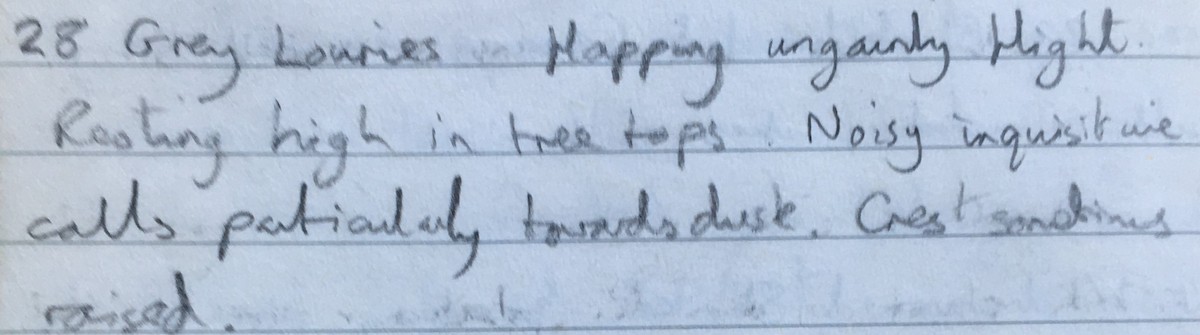 28 Grey Louries flapping ungainly flight.
Resting high in tree tops. Noisy inquisitive
calls particularly towards dusk. Crest sometimes
raised.